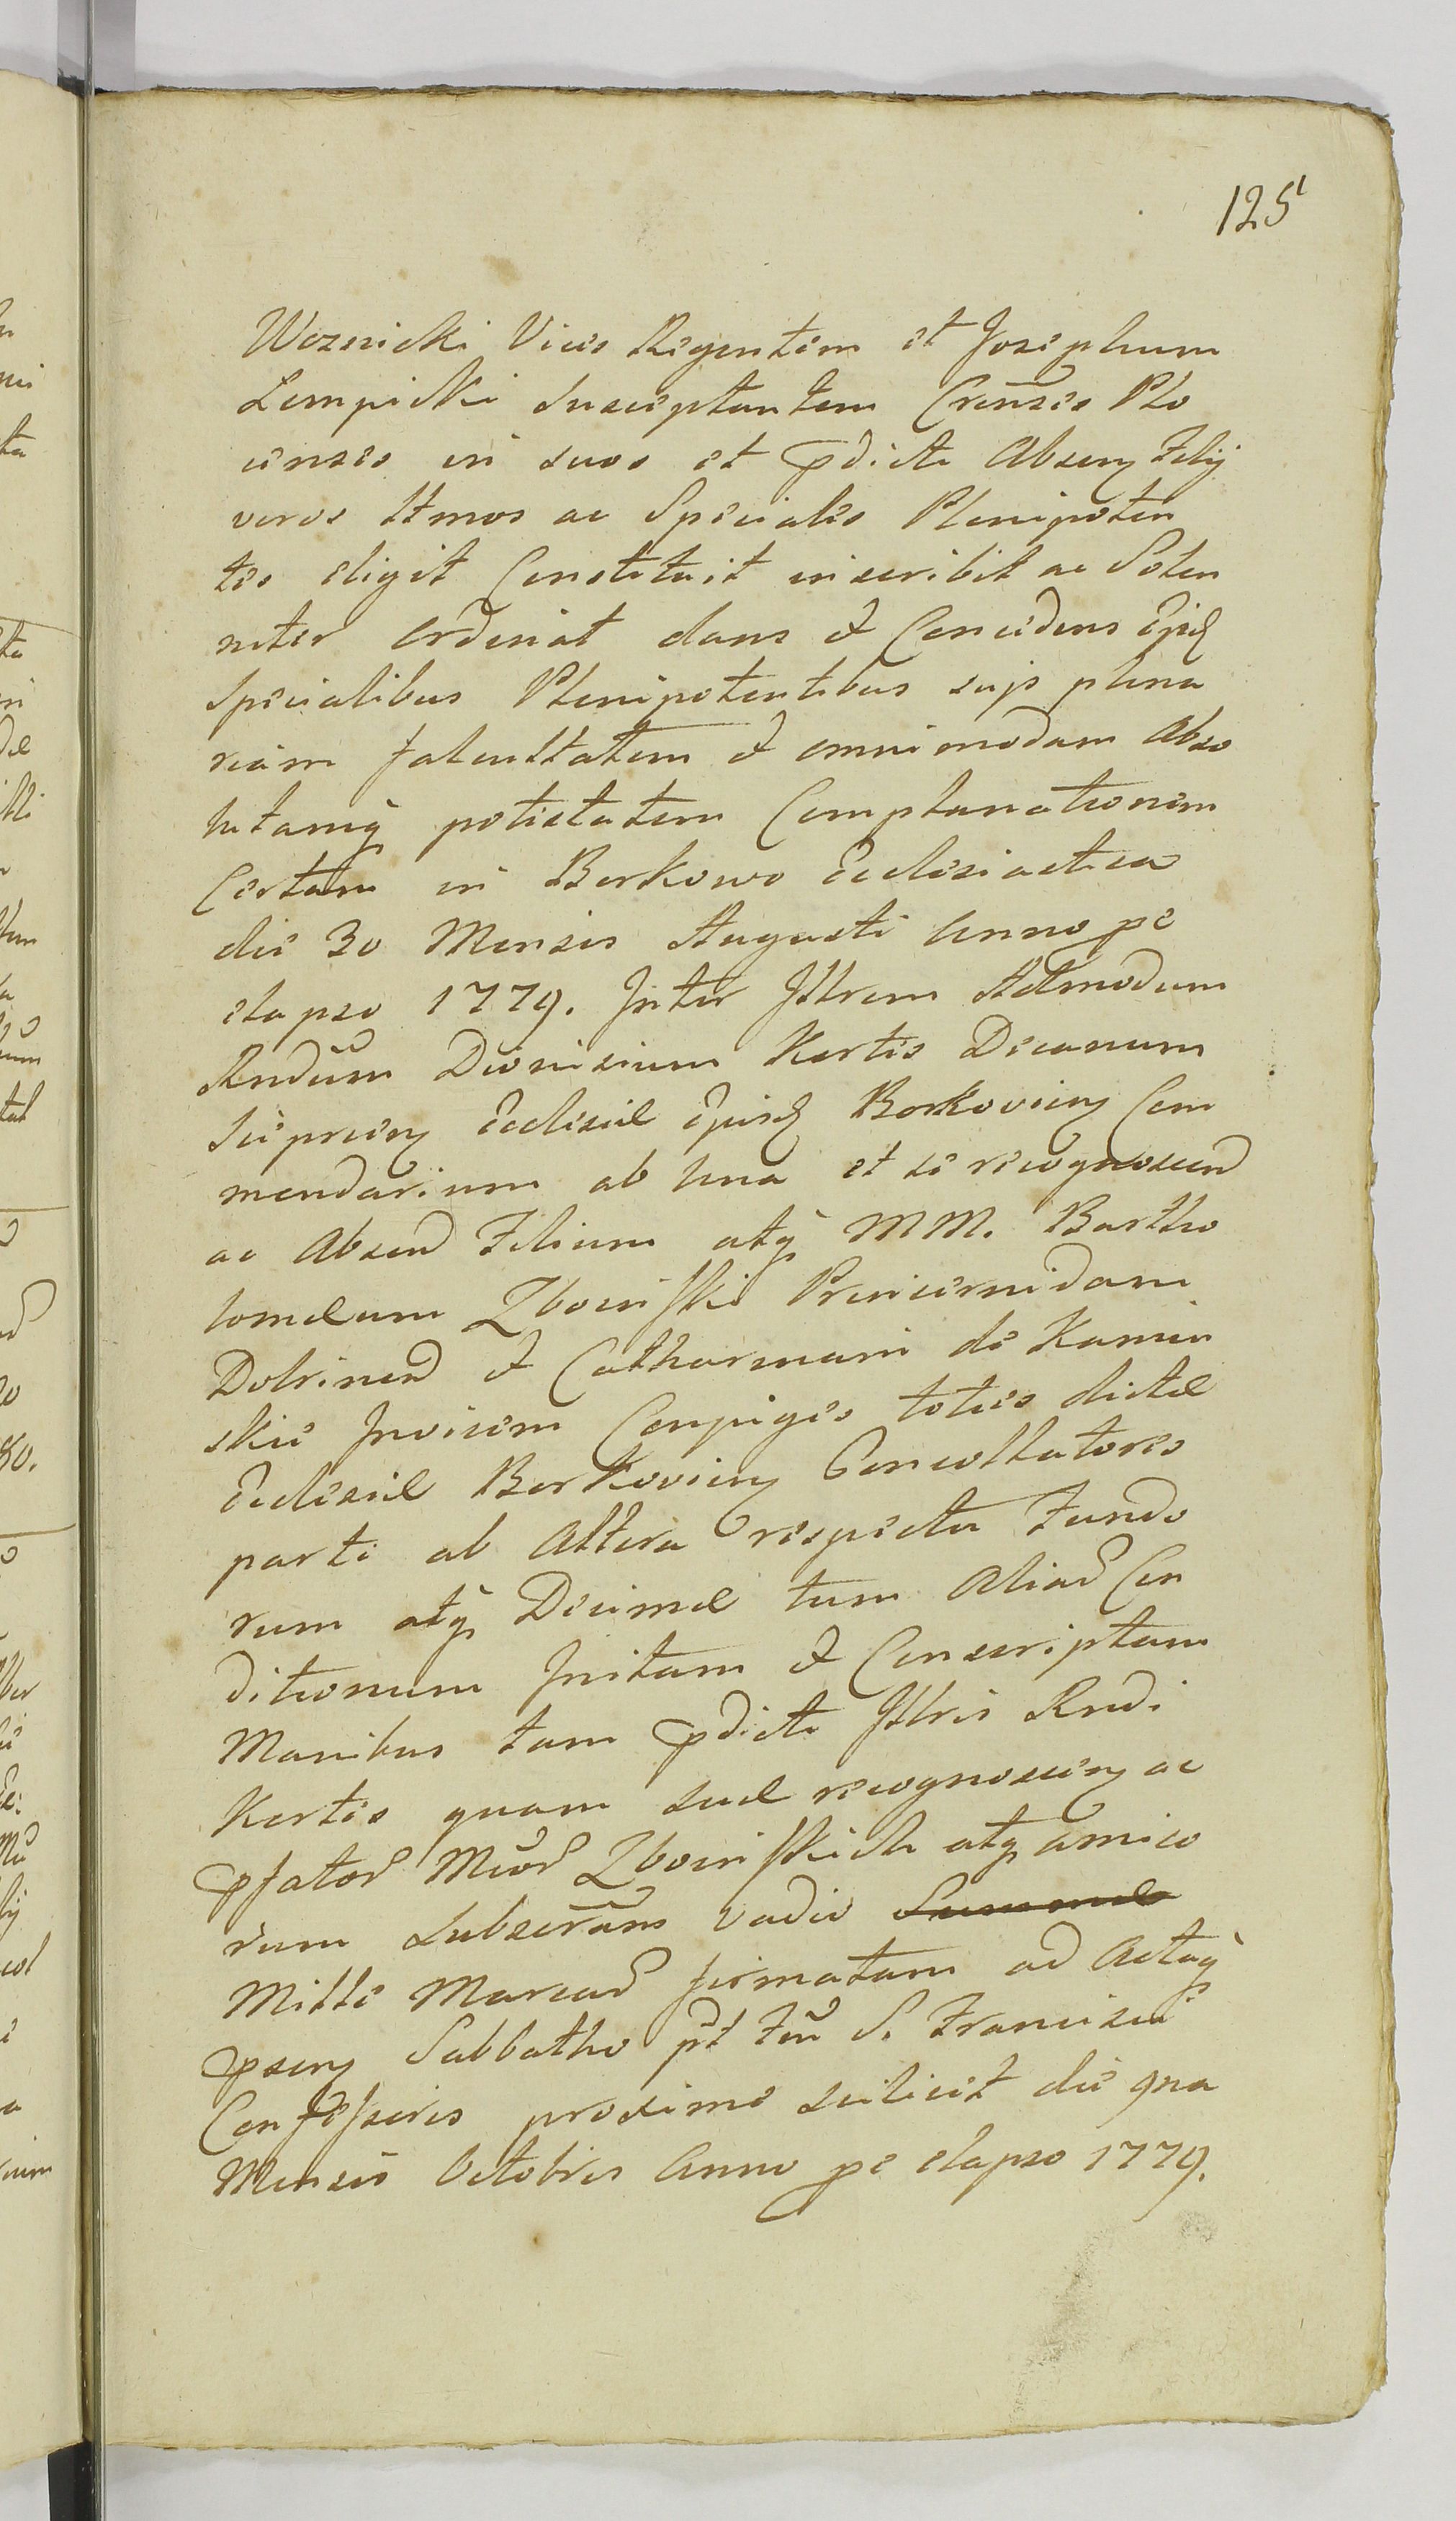 125
Woznicki Vices Regentem et Josephum
Lempicki Susceptantem Crenses Plo
censes in suos et pdicti Absen Filij
veros lttmos ac Speciales Plenipoten
tes eligit Constituit inscribit ac Solen
niter Ordinat dans et Concedens ejusd
Specialibus Plenipotentibus suis plena
riam facultatem et omnimodam Abso
lutamq potestatem Complanationem
Certam in Borkowo Ecclesiastica
die 30 Mensis Augusti Anno pe
elapso 1779. Inter Illrem Admodum
Rndum Dionisium Kortis Decanum
Sieprcen Ecclesiæ Ejusd Borkovien Com
mendarium ab Una et se recognoscend
ac Absend Filium atq MM. Bartho
lomeum Zboiński Pincernidam
Dobrinen et Catharinam de Kamin
skie Invicem Conjuges toties dictæ
Ecclesiæ Borkovien Concollatores
parti ab Altera respectu Fundo
rum atq Decimæ tum Aliar Con
ditionum Initam et Conscriptam
Manibus tam pdicti Illris Rndi
Kortis quam suæ recognoscen ac
pfator Mcor Zboinskich atq amico
rum Subscrans vadio Summæ
Mille Marcar firmatam ad Actaq
psen Sabbatho pt Ftu S. Francisci
Confessoris proxime scilicet die 9na
Mensis Octobris Anno pe elapso 1779.